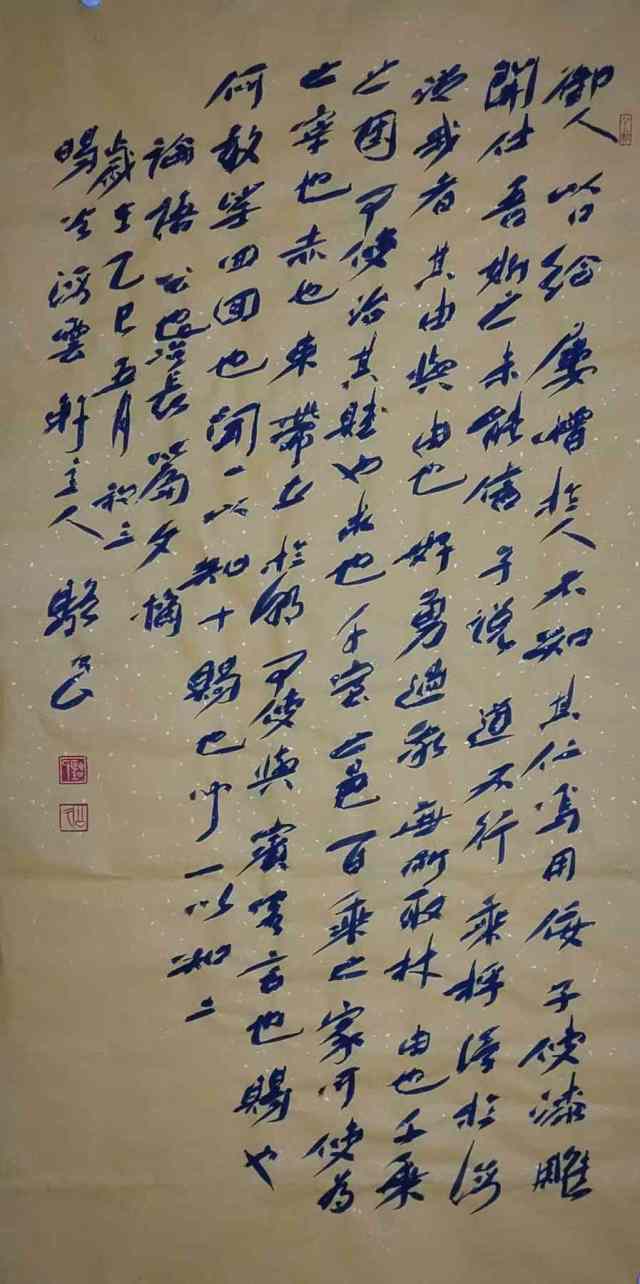 御人以口给屡憎於人不知其仁焉用佞子使漆雕
開仕吾斯之未能信子说道不行乘桴浮於海
從我者其由與由也好勇過我無所取材由也千乘
之國可使治其賦也求也千室之邑百乘之家可使為
之宰也赤也束帶立於朝可使與賓客言也賜也
何敢望回回也闻一以知十賜也闻一以知二
論語公冶長篇文摘
歲在乙巳五月初三
海雲軒主人